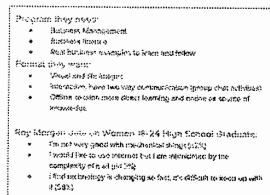 Program they need:
• Business Management
• Business finance
• Real business examples to learn and follow
Format they want:
• Visual and
• Interactive, have two way communication (group chat activities)
• Offline to gain more direct learning and online as source of
knowledge.
Roy Morgan data on Women 18-24 High School Graduate:
• I'm not very good with mechanical things
• I would like to use internet but I am intimidated by the
complexity of it all
• I find technology is changing so fast, it's difficult to keep up with
it